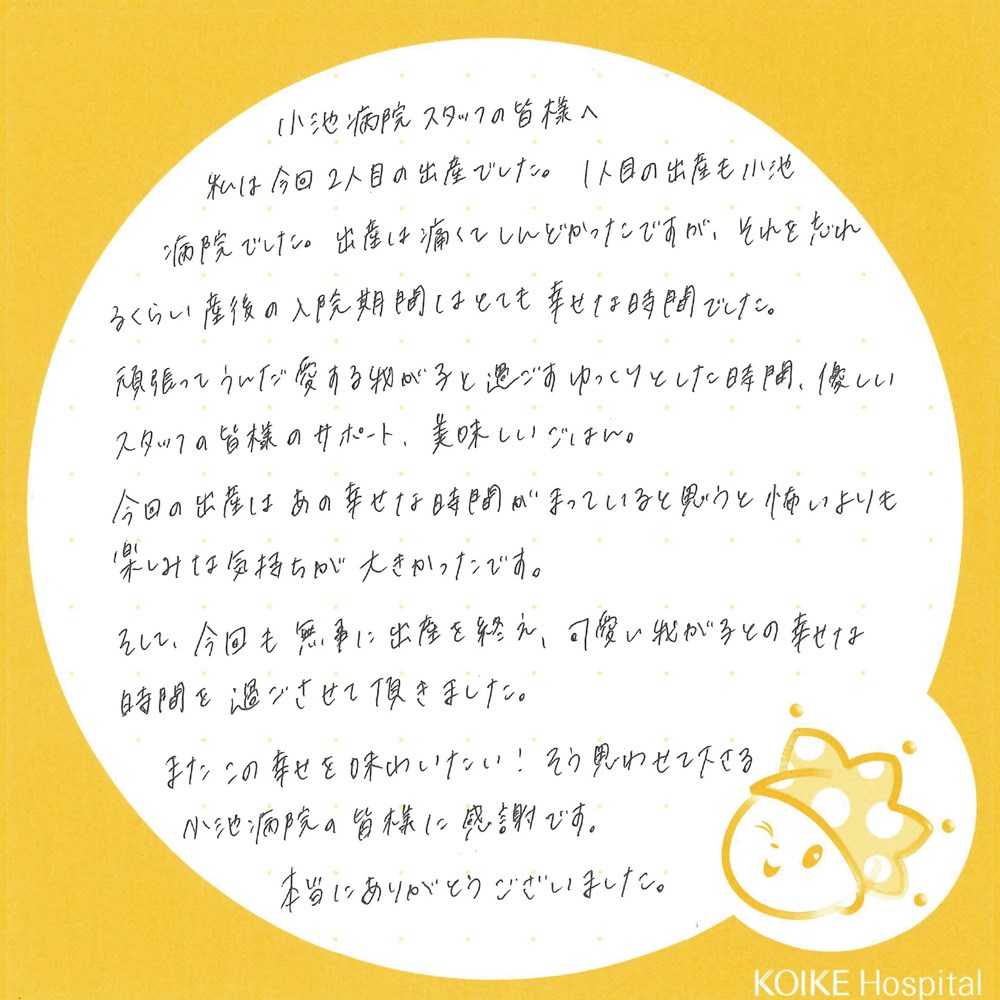 小池病院スタッフの皆様へ
私は今回2人目の出産でした。1人目の出産も小池
病院でした。出産は痛くてしんどかったですが、それを忘れ
るくらい産後の入院期間はとても幸せな時間でした。
頑張ってうんだ愛する我が子と過ごすゆっくりとした時間、優しい
スタッフの皆様のサポート、美味しいごはん。
今回の出産はあの幸せな時間がまっていると思うと怖いよりも
楽しみな気持ちが大きかったです。
そして、今回も無事に出産を終え、可愛い我が子との幸せな
時間を過ごさせて頂きました。
またこの幸せを味わいたい！そう思わせて下さる
小池病院の皆様に感謝です。
本当にありがとうございました。
KOIKE Hospital